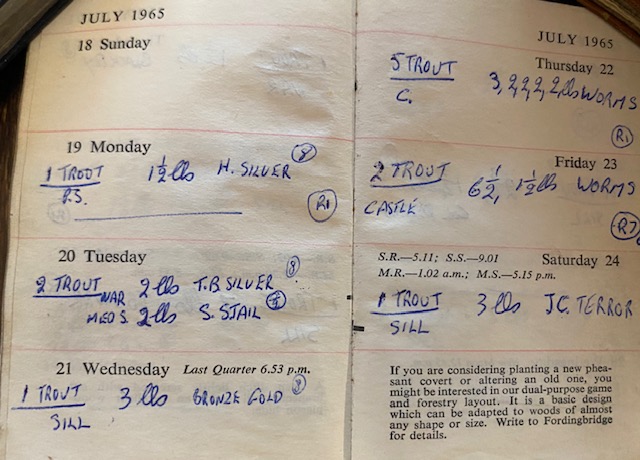 JULY 1965
18 Sunday
19 Monday
1 TROUT 1½ lbs H. SILVER 8
P.S. R1
20 Tuesday
2 TROUT NAR 2 lbs T.B SILVER 8
MEDS. 2 lbs S. STAIL
21 Wednesday Last Quarter 6.53 p.m.
1 TROUT 3 lbs BRONZE GOLD 8
SILL
JULY 1965
Thursday 22
5 TROUT 3, 2, 2, 2, 2 lbs WORMS
C.
R1
Friday 23
2 TROUT 6½, 1½ lbs WORMS
CASTLE
R7
S.R.—5.11; S.S.—9.01 Saturday 24
M.R.—1.02 a.m.; M.S.—5.15 p.m.
1 TROUT 3 lbs J.C. TERROR
SILL
If you are considering planting a new phea-
sant covert or altering an old one, you
might be interested in our dual-purpose game
and forestry layout. It is a basic design
which can be adapted to woods of almost
any shape or size. Write to Fordingbridge
for details.